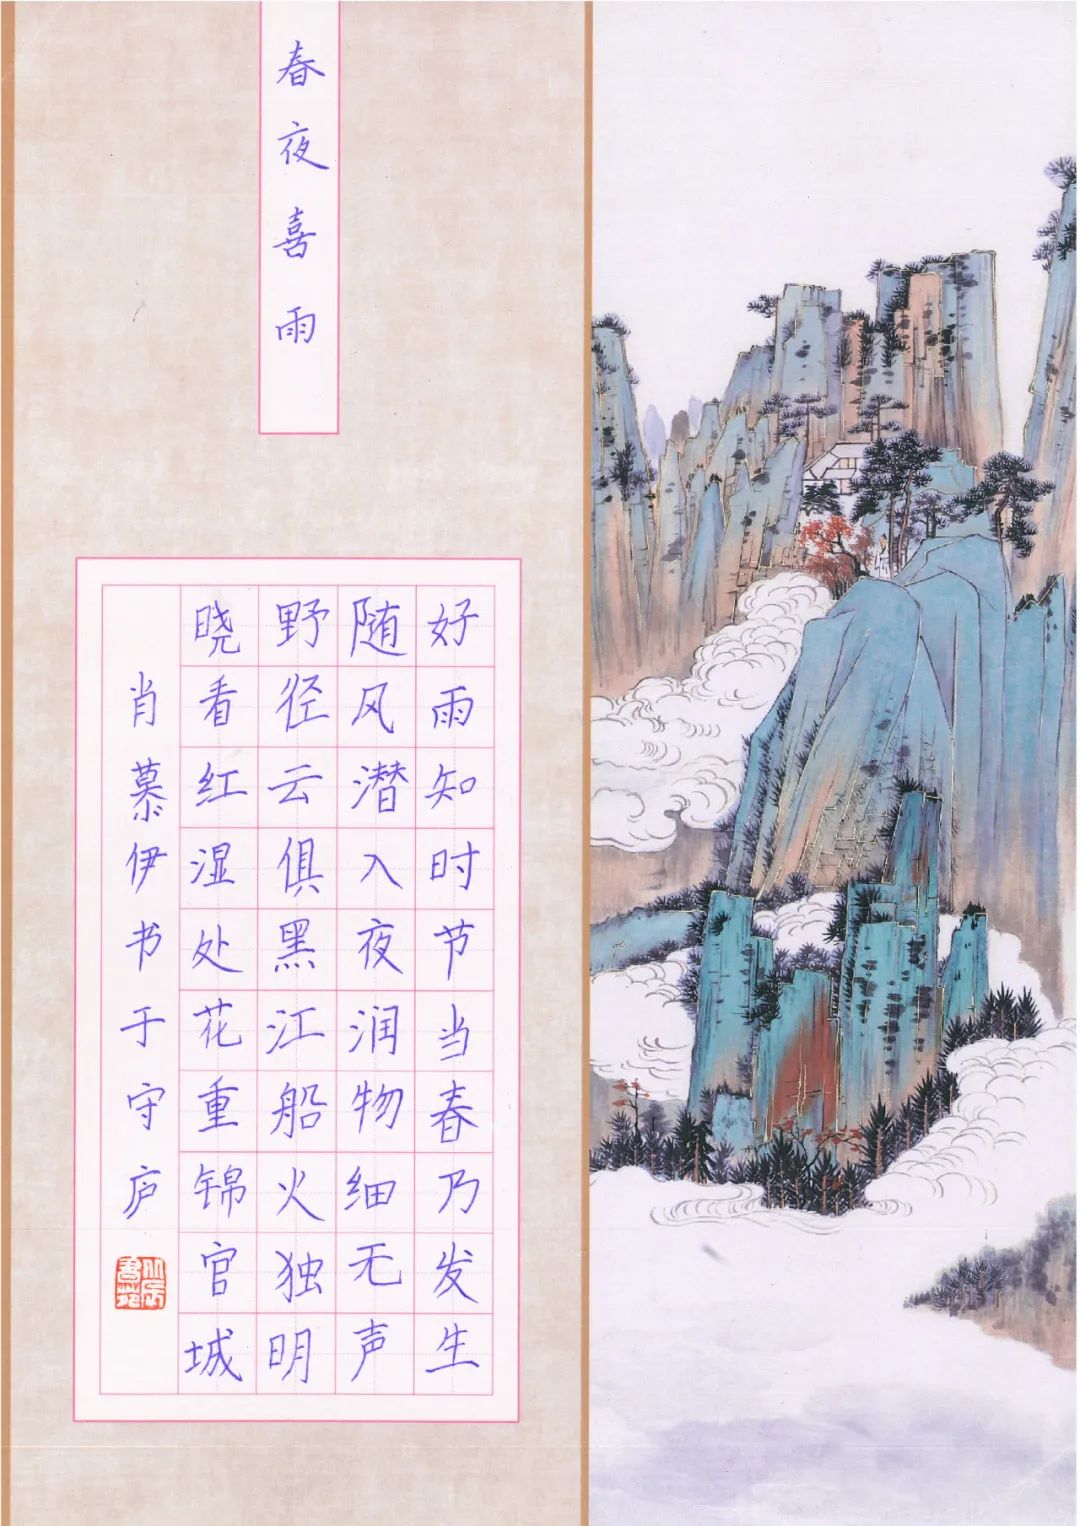 春夜喜雨
好雨知时节当春乃发生
随风潜入夜润物细无声
野径云俱黑江船火独明
晓看红湿处花重锦官城
肖慕伊书于守庐